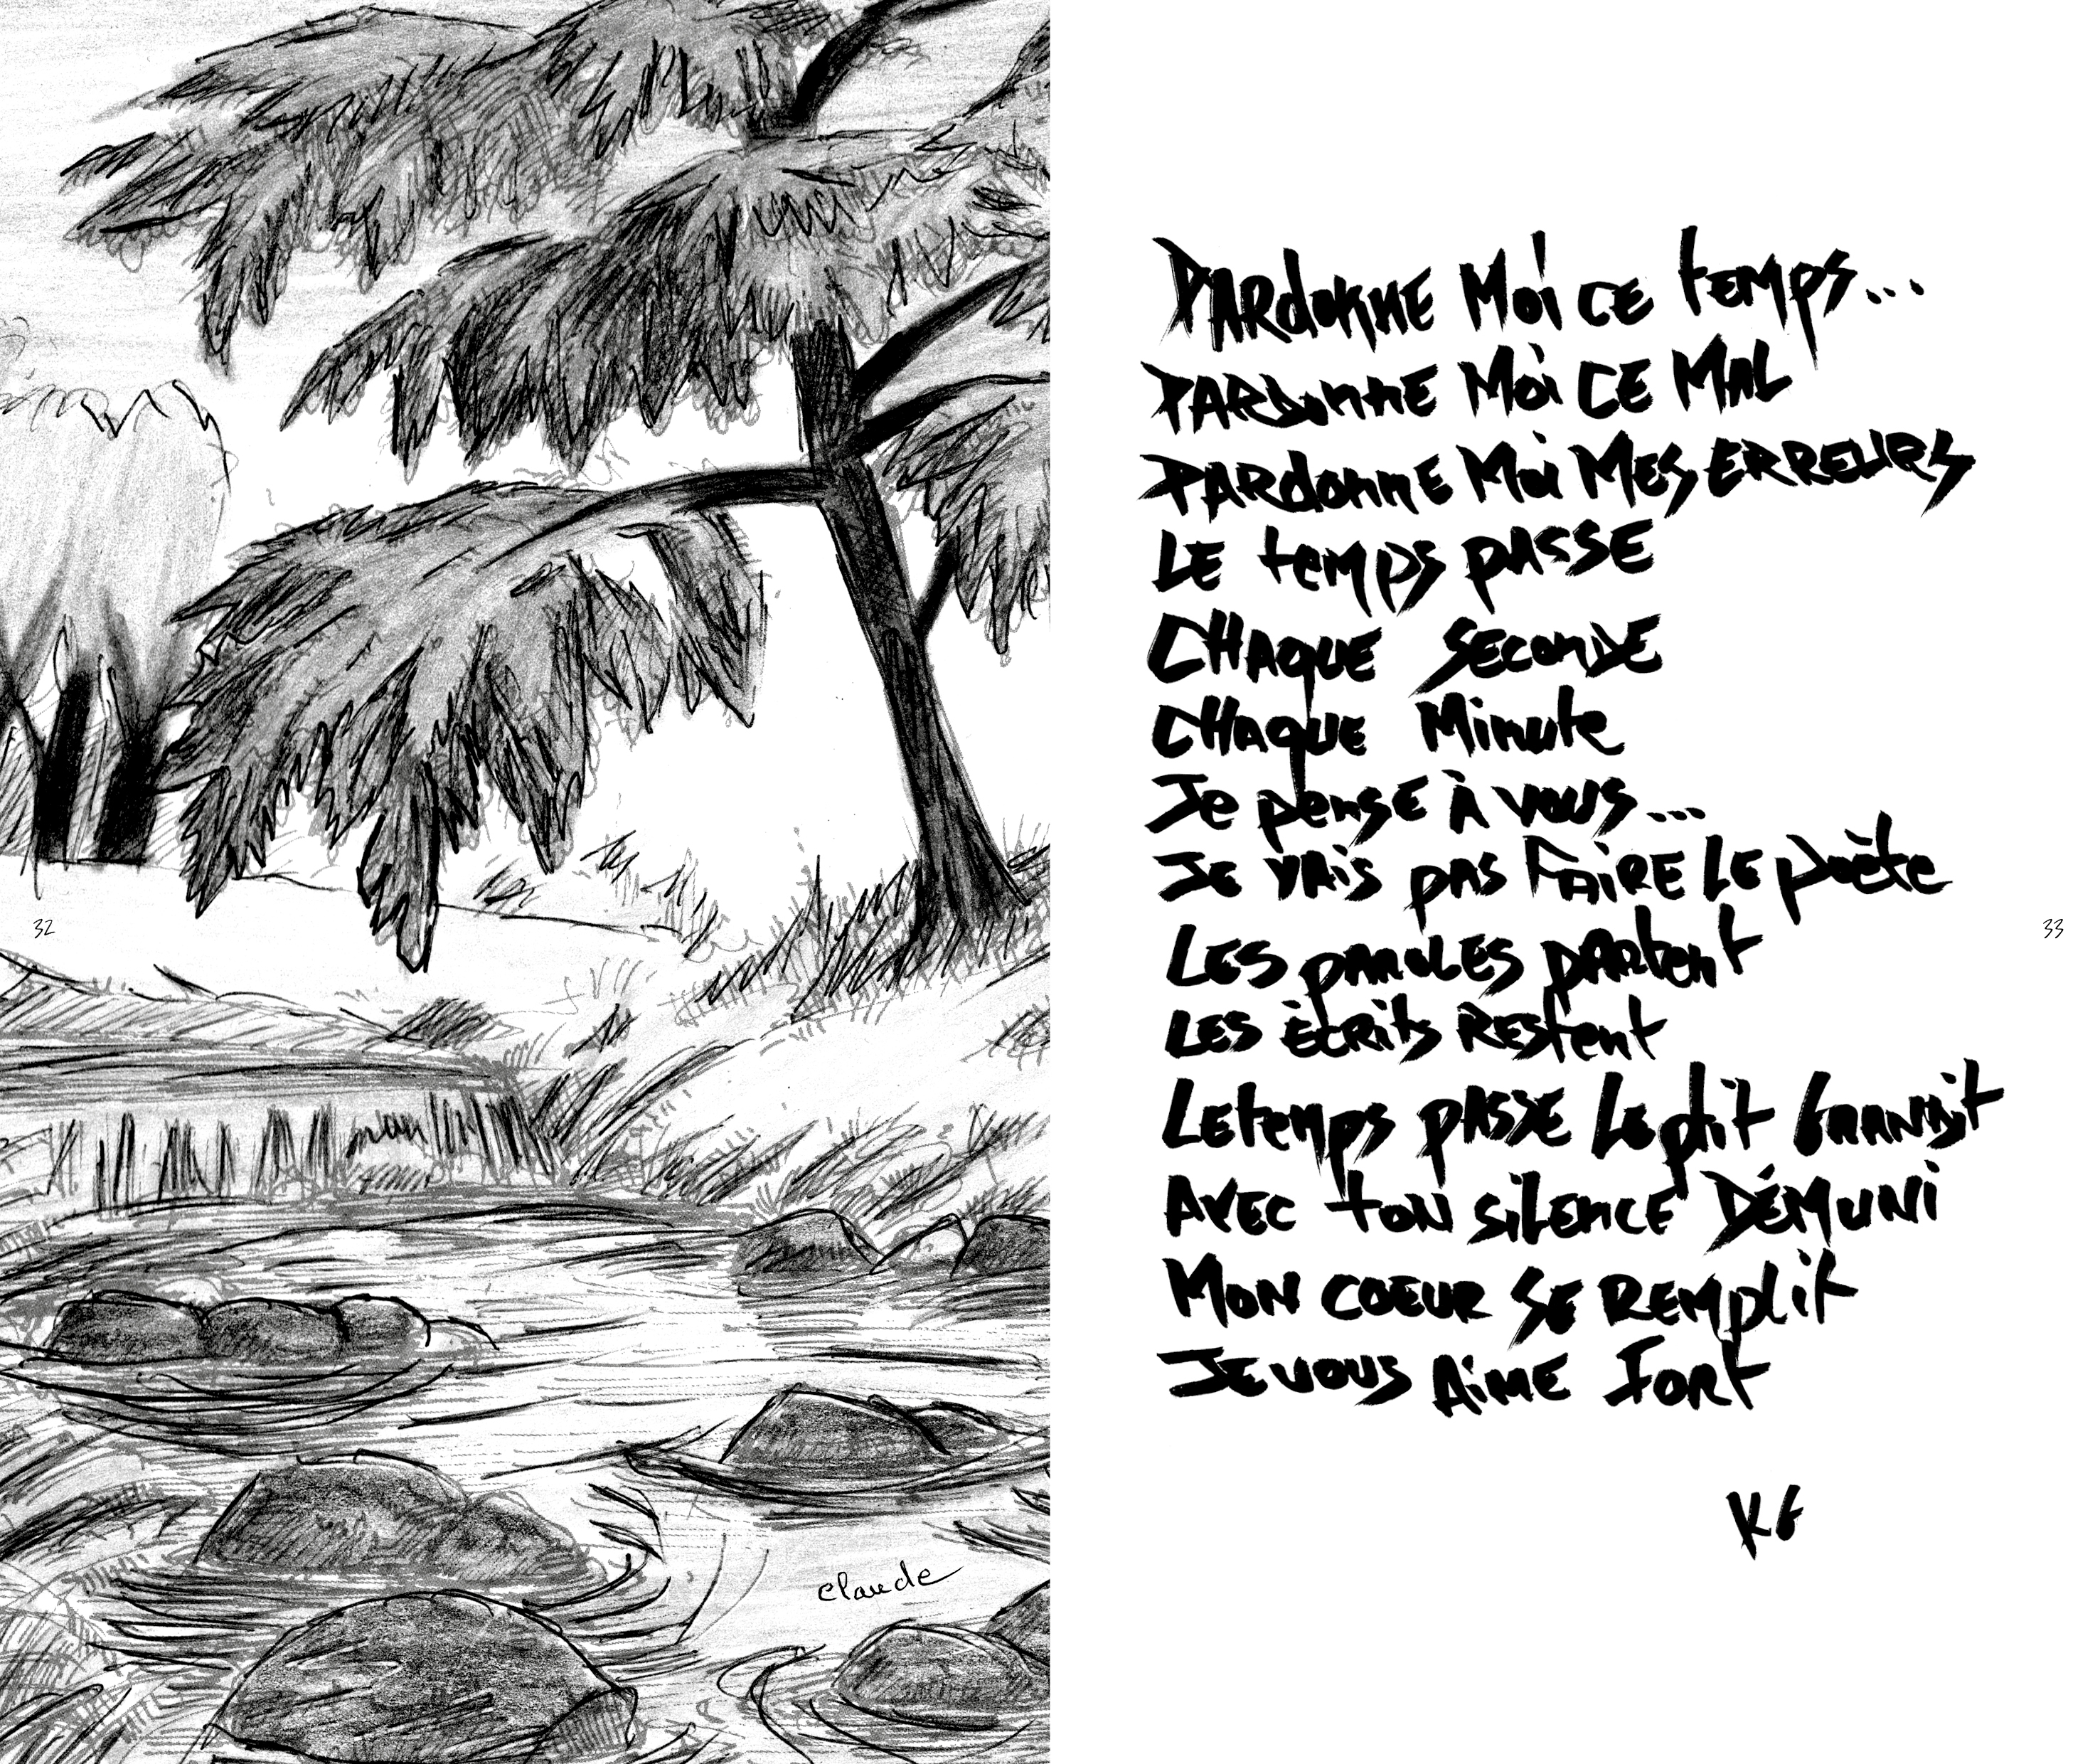 32
claude
PARdONNE Moi CE tEMPS...
PARDONNE Moi CE MAL
PARdONNE Moi MES ERREURS
LE tEMPS PASSE
CHAQUE SECONDE
CHAQUE Minute
Je pense À vous...
JE VAIS PAS FAIRE LE poète
LES PAROLES PARtent
LES ÉCRits REStent
LE tEMPS PASSE LE ptit GRANDit
AVEC tON SILENCE DÉMUNI
MON COEUR SE REMplit
JE VOUS AIME FORt
KG
33